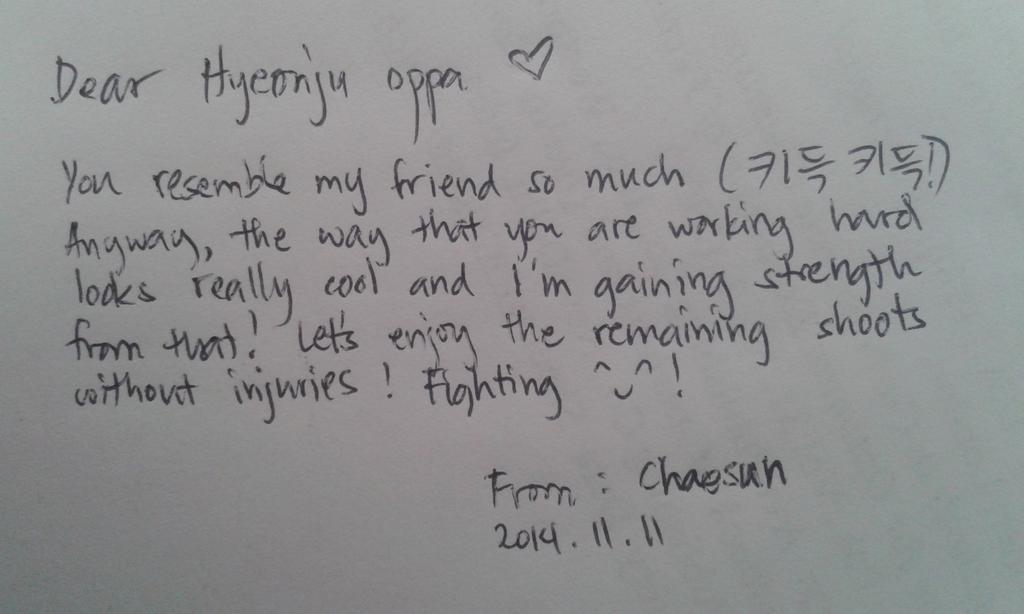 Dear Hyeonju oppa ♡
You resemble my friend so much (키득 키득!)
Anyway, the way that you are working hard
looks really cool and I'm gaining strength
from that! Let's enjoy the remaining shoots
without injuries! Fighting ^‿^!
From : Chaesun
2014.11.11